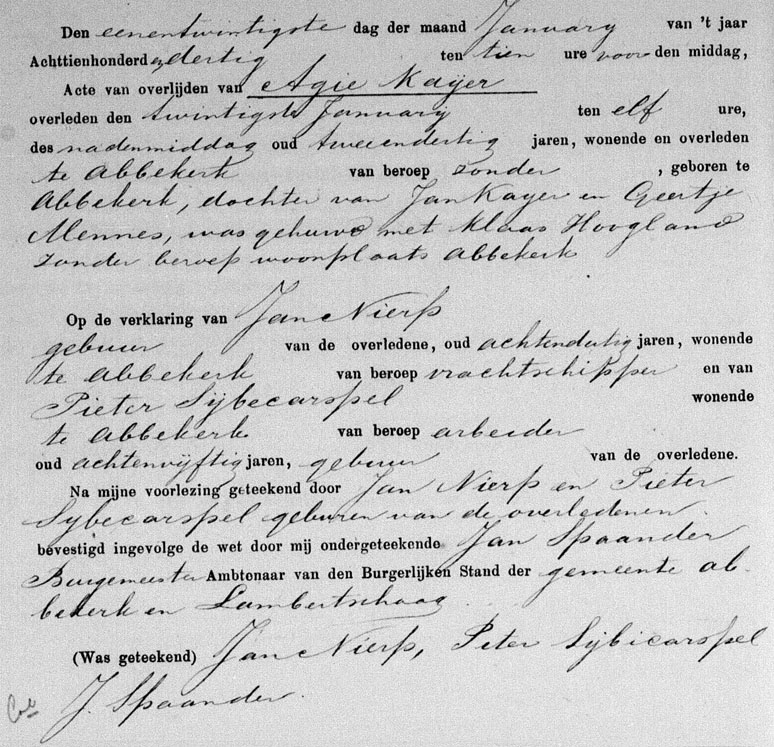 Den eenentwintigste dag der maand January van 't jaar
Achttienhonderd en dertig ten tien ure voor den middag,
Acte van overlijden van Agie Kayer
overleden den twintigste January ten elf ure,
des nadenmiddag oud tweeendertig jaren, wonende en overleden
te Abbekerk van beroep zonder , geboren te
Abbekerk, dochter van Jan Kayer en Geertje
Mennes, was gehuwd met Klaas Hoogland
zonder beroep woonplaats Abbekerk
Op de verklaring van Jan Nierp
gebuur van de overledene, oud achtendertig jaren, wonende
te Abbekerk van beroep vrachtschipper en van
Pieter Sijbecarspel wonende
te Abbekerk van beroep arbeider
oud achtenvijftig jaren, gebuur van de overledene.
Na mijne voorlezing geteekend door Jan Nierp en Pieter
Sybecarspel geburen van de overledenen.
bevestigd ingevolge de wet door mij ondergeteekende Jan Spaander
Burgemeester Ambtonaar van den Burgerlijken Stand der gemeente Ab-
bekerk en Lambertschaag.
(Was geteekend) Jan Nierp, Peter Sijbicarspel
J. Spaander.